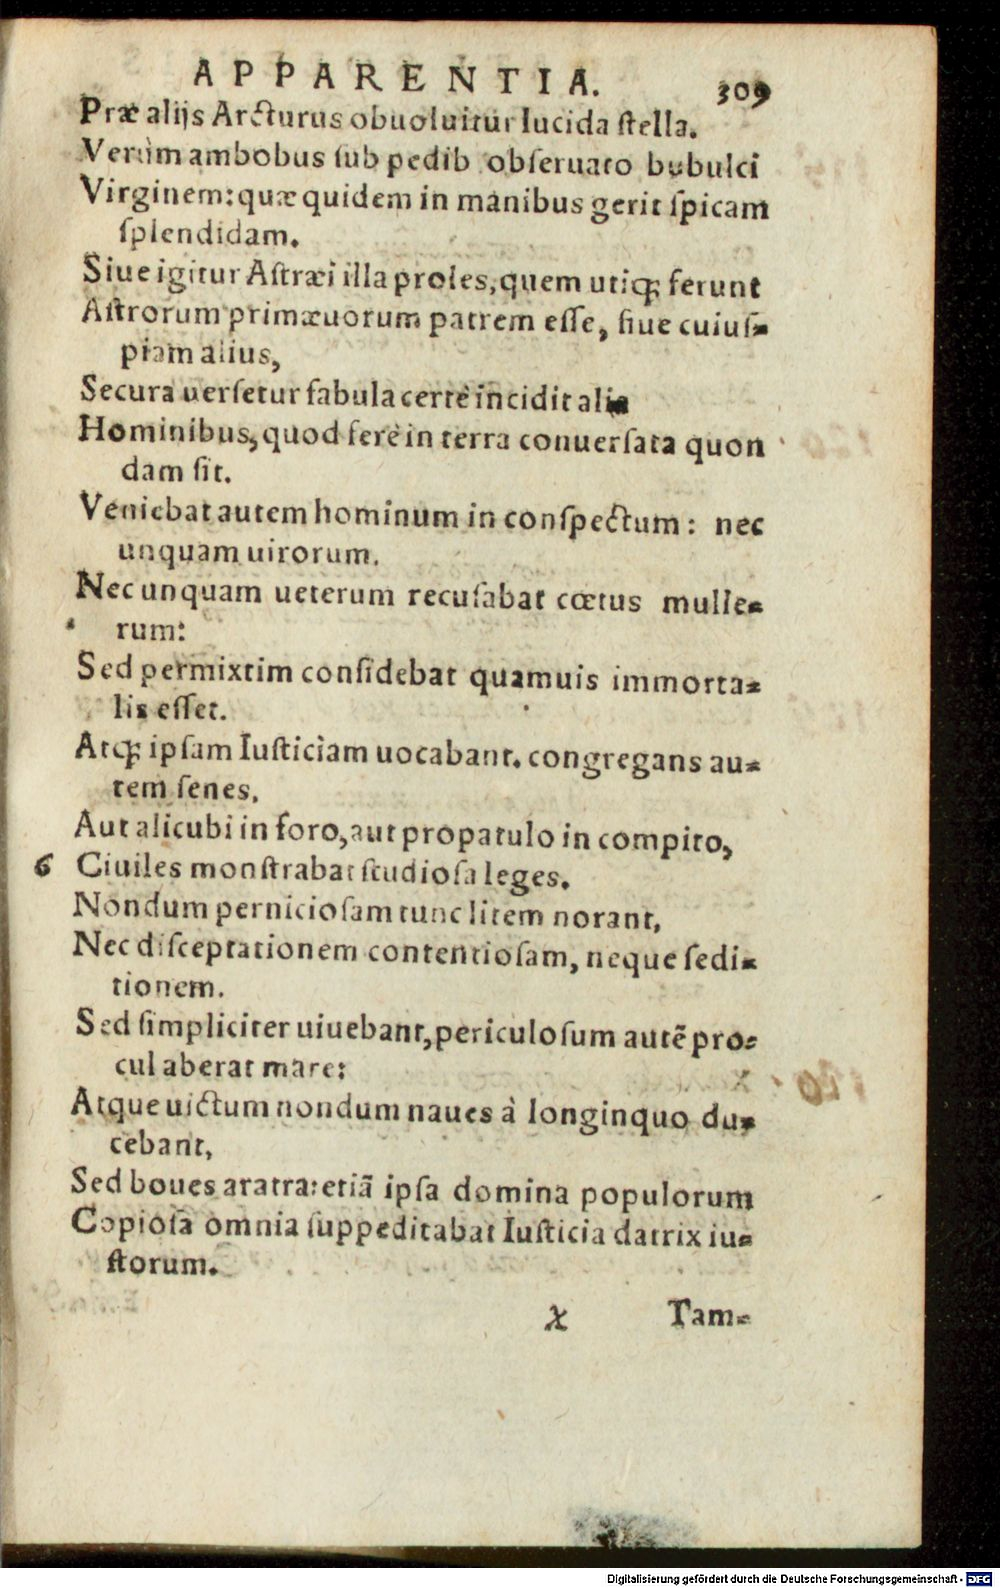 APPARENTIA. 309
Præ alijs Arcturus obuoluitur lucida stella.
Verùm ambobus sub pedib obseruato bubulci
Virginem: quæ quidem in manibus gerit spicam
splendidam.
Siue igitur Astræi illa proles, quem utiq; ferunt
Astrorum primæuorum patrem esse, siue cuius-
piam alius,
Secura uersetur fabula certè incidit alia
Hominibus, quod ferè in terra conuersata quon
dam sit.
Veniebat autem hominum in conspectum: nec
unquam uirorum.
Nec unquam ueterum recusabat cœtus mulie-
rum:
Sed permixtim considebat quamuis immorta-
lis esset.
Atq; ipsam Iusticiam uocabant. congregans au-
tem senes,
Aut alicubi in foro, aut propatulo in compito,
6 Ciuiles monstrabat studiosa leges.
Nondum perniciosam tunc litem norant,
Nec disceptationem contentiosam, neque sedi-
tionem.
Sed simpliciter uiuebant, periculosum autẽ pro-
cul aberat mare:
Atque uictum nondum naues à longinquo du-
cebant,
Sed boues aratra: etiã ipsa domina populorum
Copiosa omnia suppeditabat Iusticia datrix iu-
storum.
X Tam-
Digitalisierung gefördert durch die Deutsche Forschungsgemeinschaft - DFG